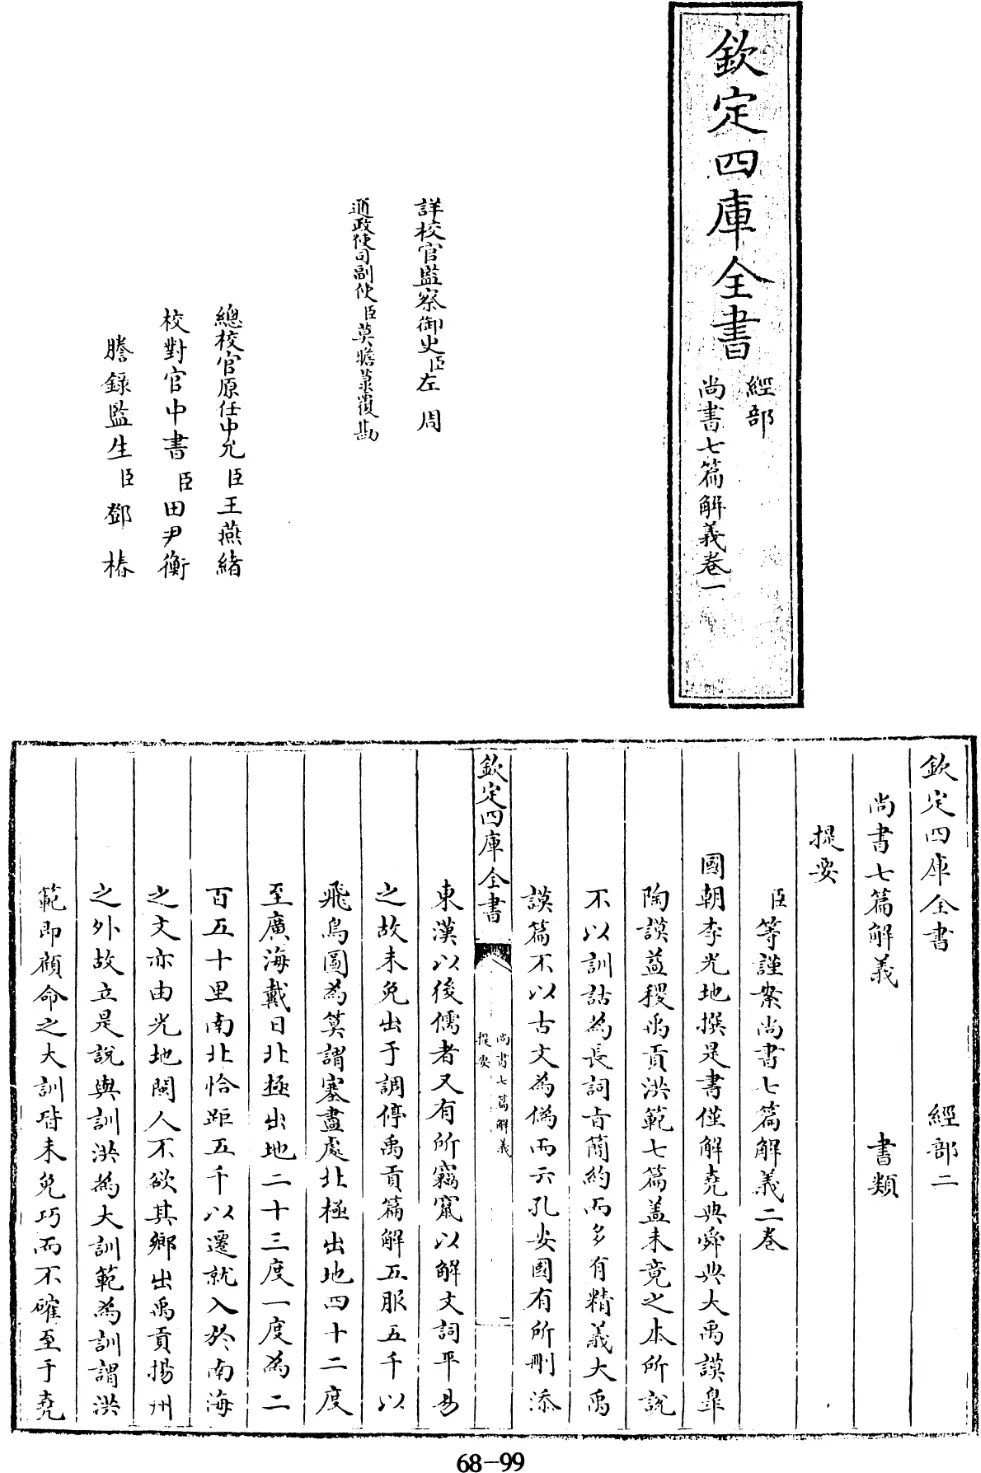 欽定四庫全書
經部
尚書七篇解義卷一
詳校官監察御史臣左周
通政使司副使臣莫瞻菉覆勘
總校官原任中允臣王燕緒
校對官中書臣田尹衡
謄錄監生臣鄧椿
欽定四庫全書 經部二
尚書七篇解義 書類
提要
臣等謹案尚書七篇解義二卷
國朝李光地撰是書僅解堯典舜典大禹謨臯
陶謨益稷禹貢洪範七篇蓋未竟之本所説
不以訓詁為長詞旨簡約而多有精義大禹
謨篇不以古文為偽而云孔安國有所刪添
欽定四庫全書
尚書七篇解義
提要
一
東漢以後儒者又有所竊竄以解文詞平易
之故未免出于調停禹貢篇解五服五千以
飛鳥圖為算謂塞盡處北極出地四十二度
至廣海戴日北極出地二十三度一度為二
百五十里南北恰距五千以遷就入於南海
之文亦由光地閩人不欲其鄉出禹貢揚州
之外故立是説與訓洪為大訓範為訓謂洪
範即顧命之大訓皆未免巧而不確至于堯
68-99